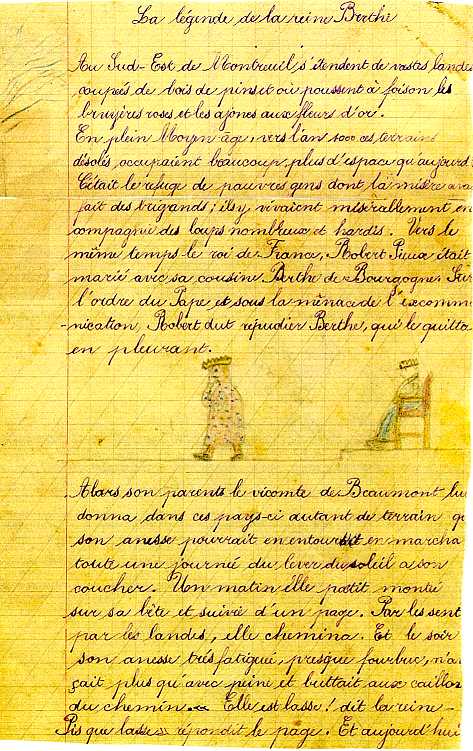 La légende de la reine Berthe
Au Sud-Est de Montreuil s'étendent de vastes lande
coupées de bois de pins et où poussent à foison les
bruyères roses et les ajoncs aux fleurs d'or.
En plein Moyen âge, vers l'an 1000 ces terrains
désolés, occupaient beaucoup plus d'espace qu'aujourd
C'était le refuge de pauvres gens dont la misère ava
fait des brigands; ils y vivaient misérablement en
compagnie des loups nombreux et hardis. Vers le
même temps le roi de France, Robert Pieux était
marié avec sa cousine Berthe de Bourgogne. Sur
l'ordre du Pape et sous la menace de l'excomm
-nication, Robert dut répudier Berthe, qui le quitta
en pleurant.
Alors son parent le vicomte de Beaumont lui
donna dans ces pays-ci autant de terrain q
son anesse pourrait en entourer en marcha
toute une journée du lever du soleil a son
coucher. Un matin elle partit montée
sur sa bête et suivie d'un page. Par les sent
par les landes, elle chemina. Et le soir
son anesse très fatigué, presque fourbue, n'a
çait plus qu'avec peine et buttait aux caillou
du chemin. Elle est lasse! dit la reine -
Pis que lasse répondit le page. Et aujourd'hui